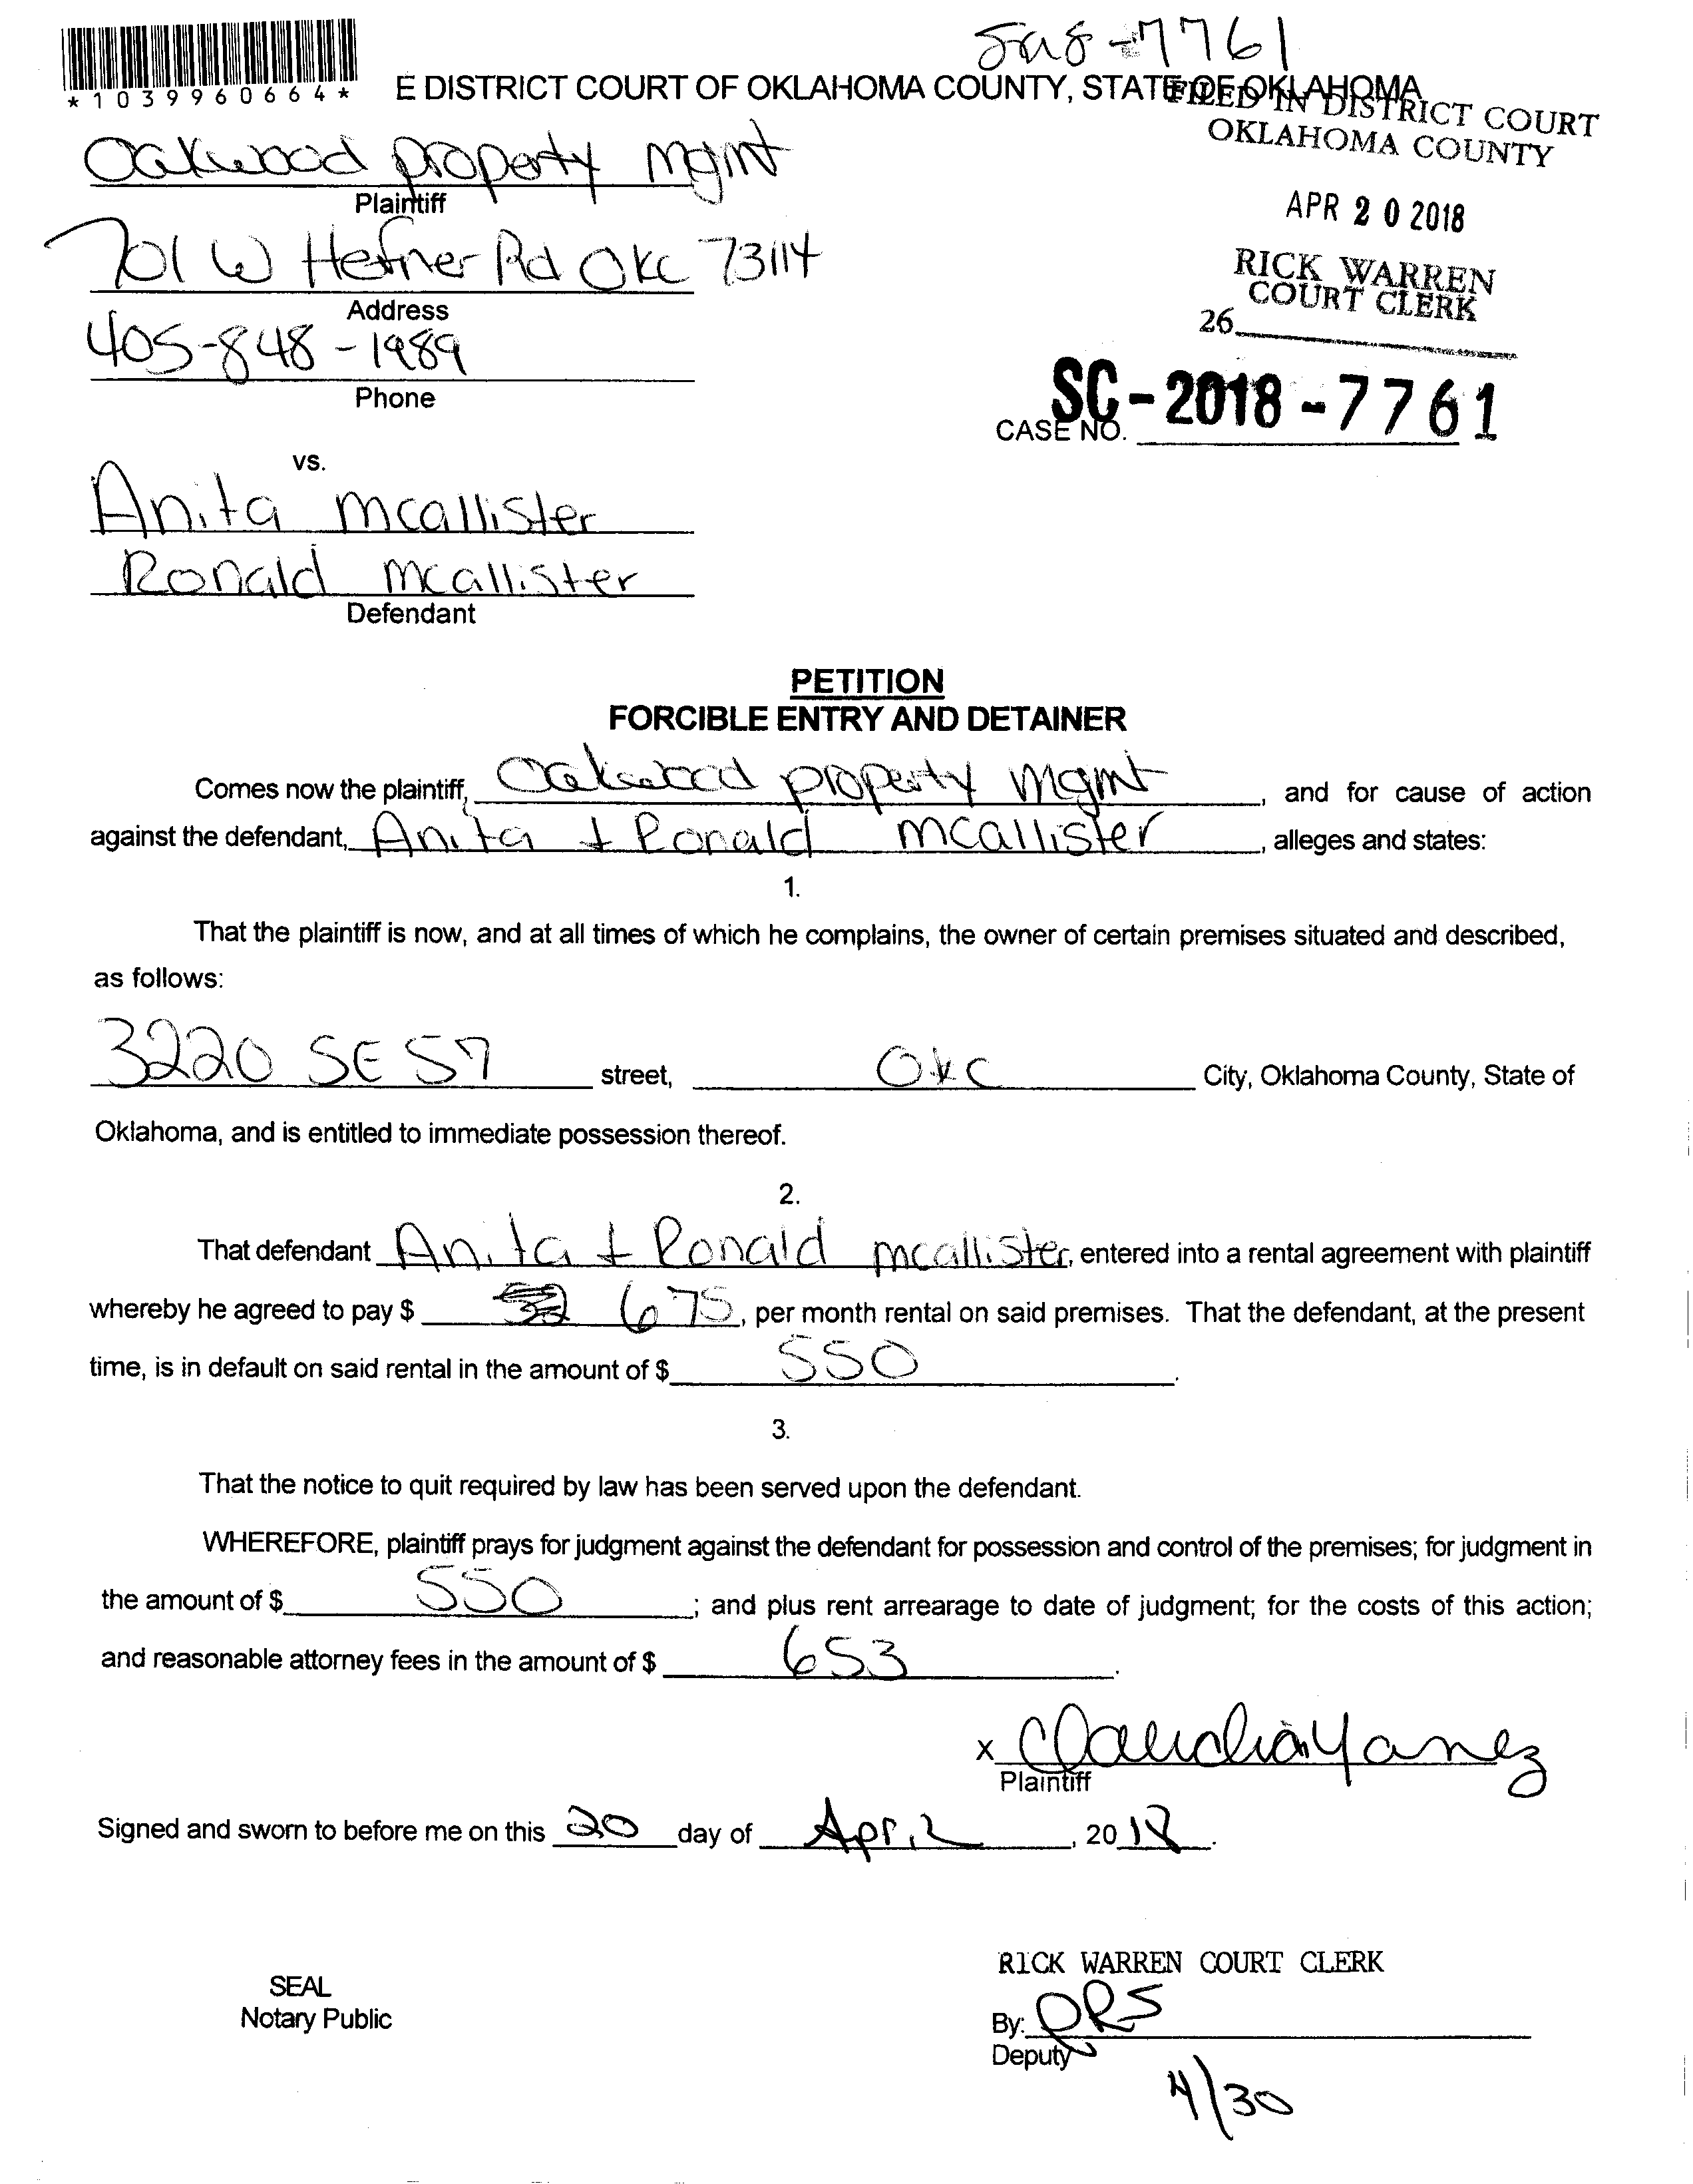 -7761
*1039960664*
E DISTRICT COURT OF OKLAHOMA COUNTY, STATE OF OKLAHOMA
FILED IN DISTRICT COURT
OKLAHOMA COUNTY
Oakwood property mgmt
Plaintiff
APR 20 2018
701 W Hefner Rd OKC 73114
Address
RICK WARREN
COURT CLERK
26
405-848-1989
Phone
SC-2018-7761
CASE NO.
vs.
Anita mcallister
Ronald mcallister
Defendant
PETITION
FORCIBLE ENTRY AND DETAINER
Comes now the plaintiff, Oakwood property mgmt, and for cause of action
against the defendant, Anita + Ronald mcallister, alleges and states:
1.
That the plaintiff is now, and at all times of which he complains, the owner of certain premises situated and described,
as follows:
3220 SE 57 street, OKC City, Oklahoma County, State of
Oklahoma, and is entitled to immediate possession thereof.
2.
That defendant Anita + Ronald mcallister, entered into a rental agreement with plaintiff
whereby he agreed to pay $ 675, per month rental on said premises. That the defendant, at the present
time, is in default on said rental in the amount of $ 550.
3.
That the notice to quit required by law has been served upon the defendant.
WHEREFORE, plaintiff prays for judgment against the defendant for possession and control of the premises; for judgment in
the amount of $ 550; and plus rent arrearage to date of judgment; for the costs of this action;
and reasonable attorney fees in the amount of $ 653.
x Claudia Yanez
Plaintiff
Signed and sworn to before me on this 20 day of April, 2018.
RICK WARREN COURT CLERK
SEAL
Notary Public
By:
Deputy
4/30